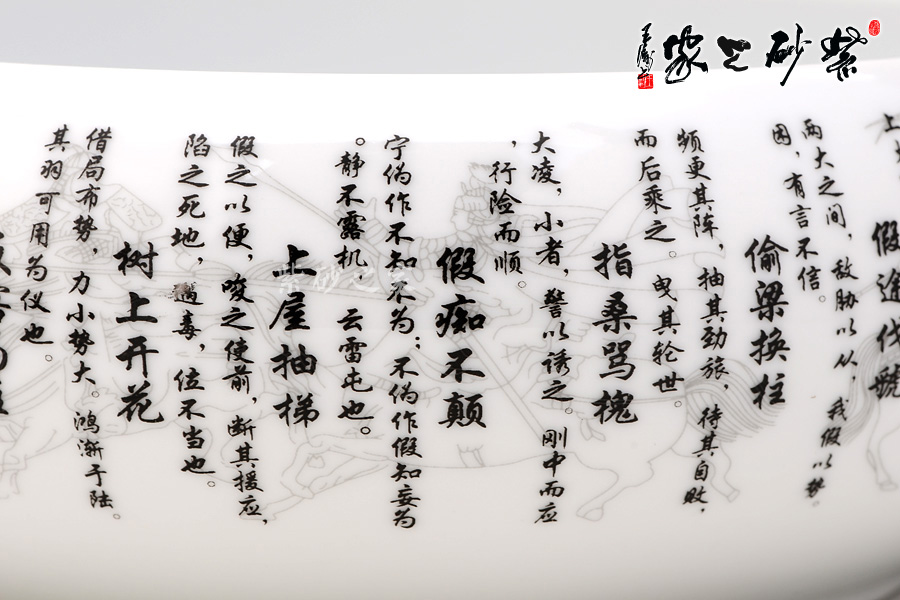 紫砂之家
假途伐虢
两大之间,敌胁以从,我假以势。
困,有言不信。
偷梁换柱
频更其阵,抽其劲旅,待其自败,
而后乘之。曳其轮世。
指桑骂槐
大凌,小者,警以诱之。刚中而应
,行险而顺。
假痴不颠
宁伪作不知不为;不伪作假知妄为
。静不露机,云雷屯也。
上屋抽梯
假之以便,唆之使前,断其援应,
陷之死地,遇毒,位不当也。
树上开花
借局布势,力小势大。鸿渐于陆。
其羽可用为仪也。
紫砂之家